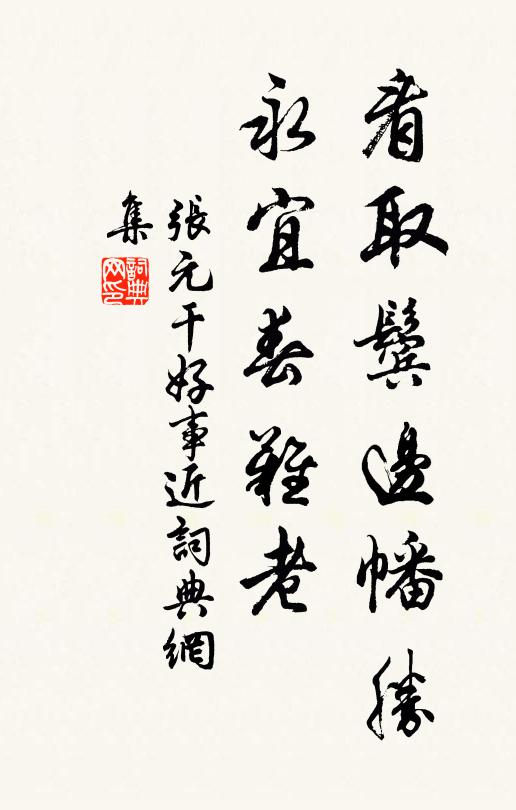 看取鬢邊幡勝
永宜春難老
張元干好事近詞典網
集
詞典
网印